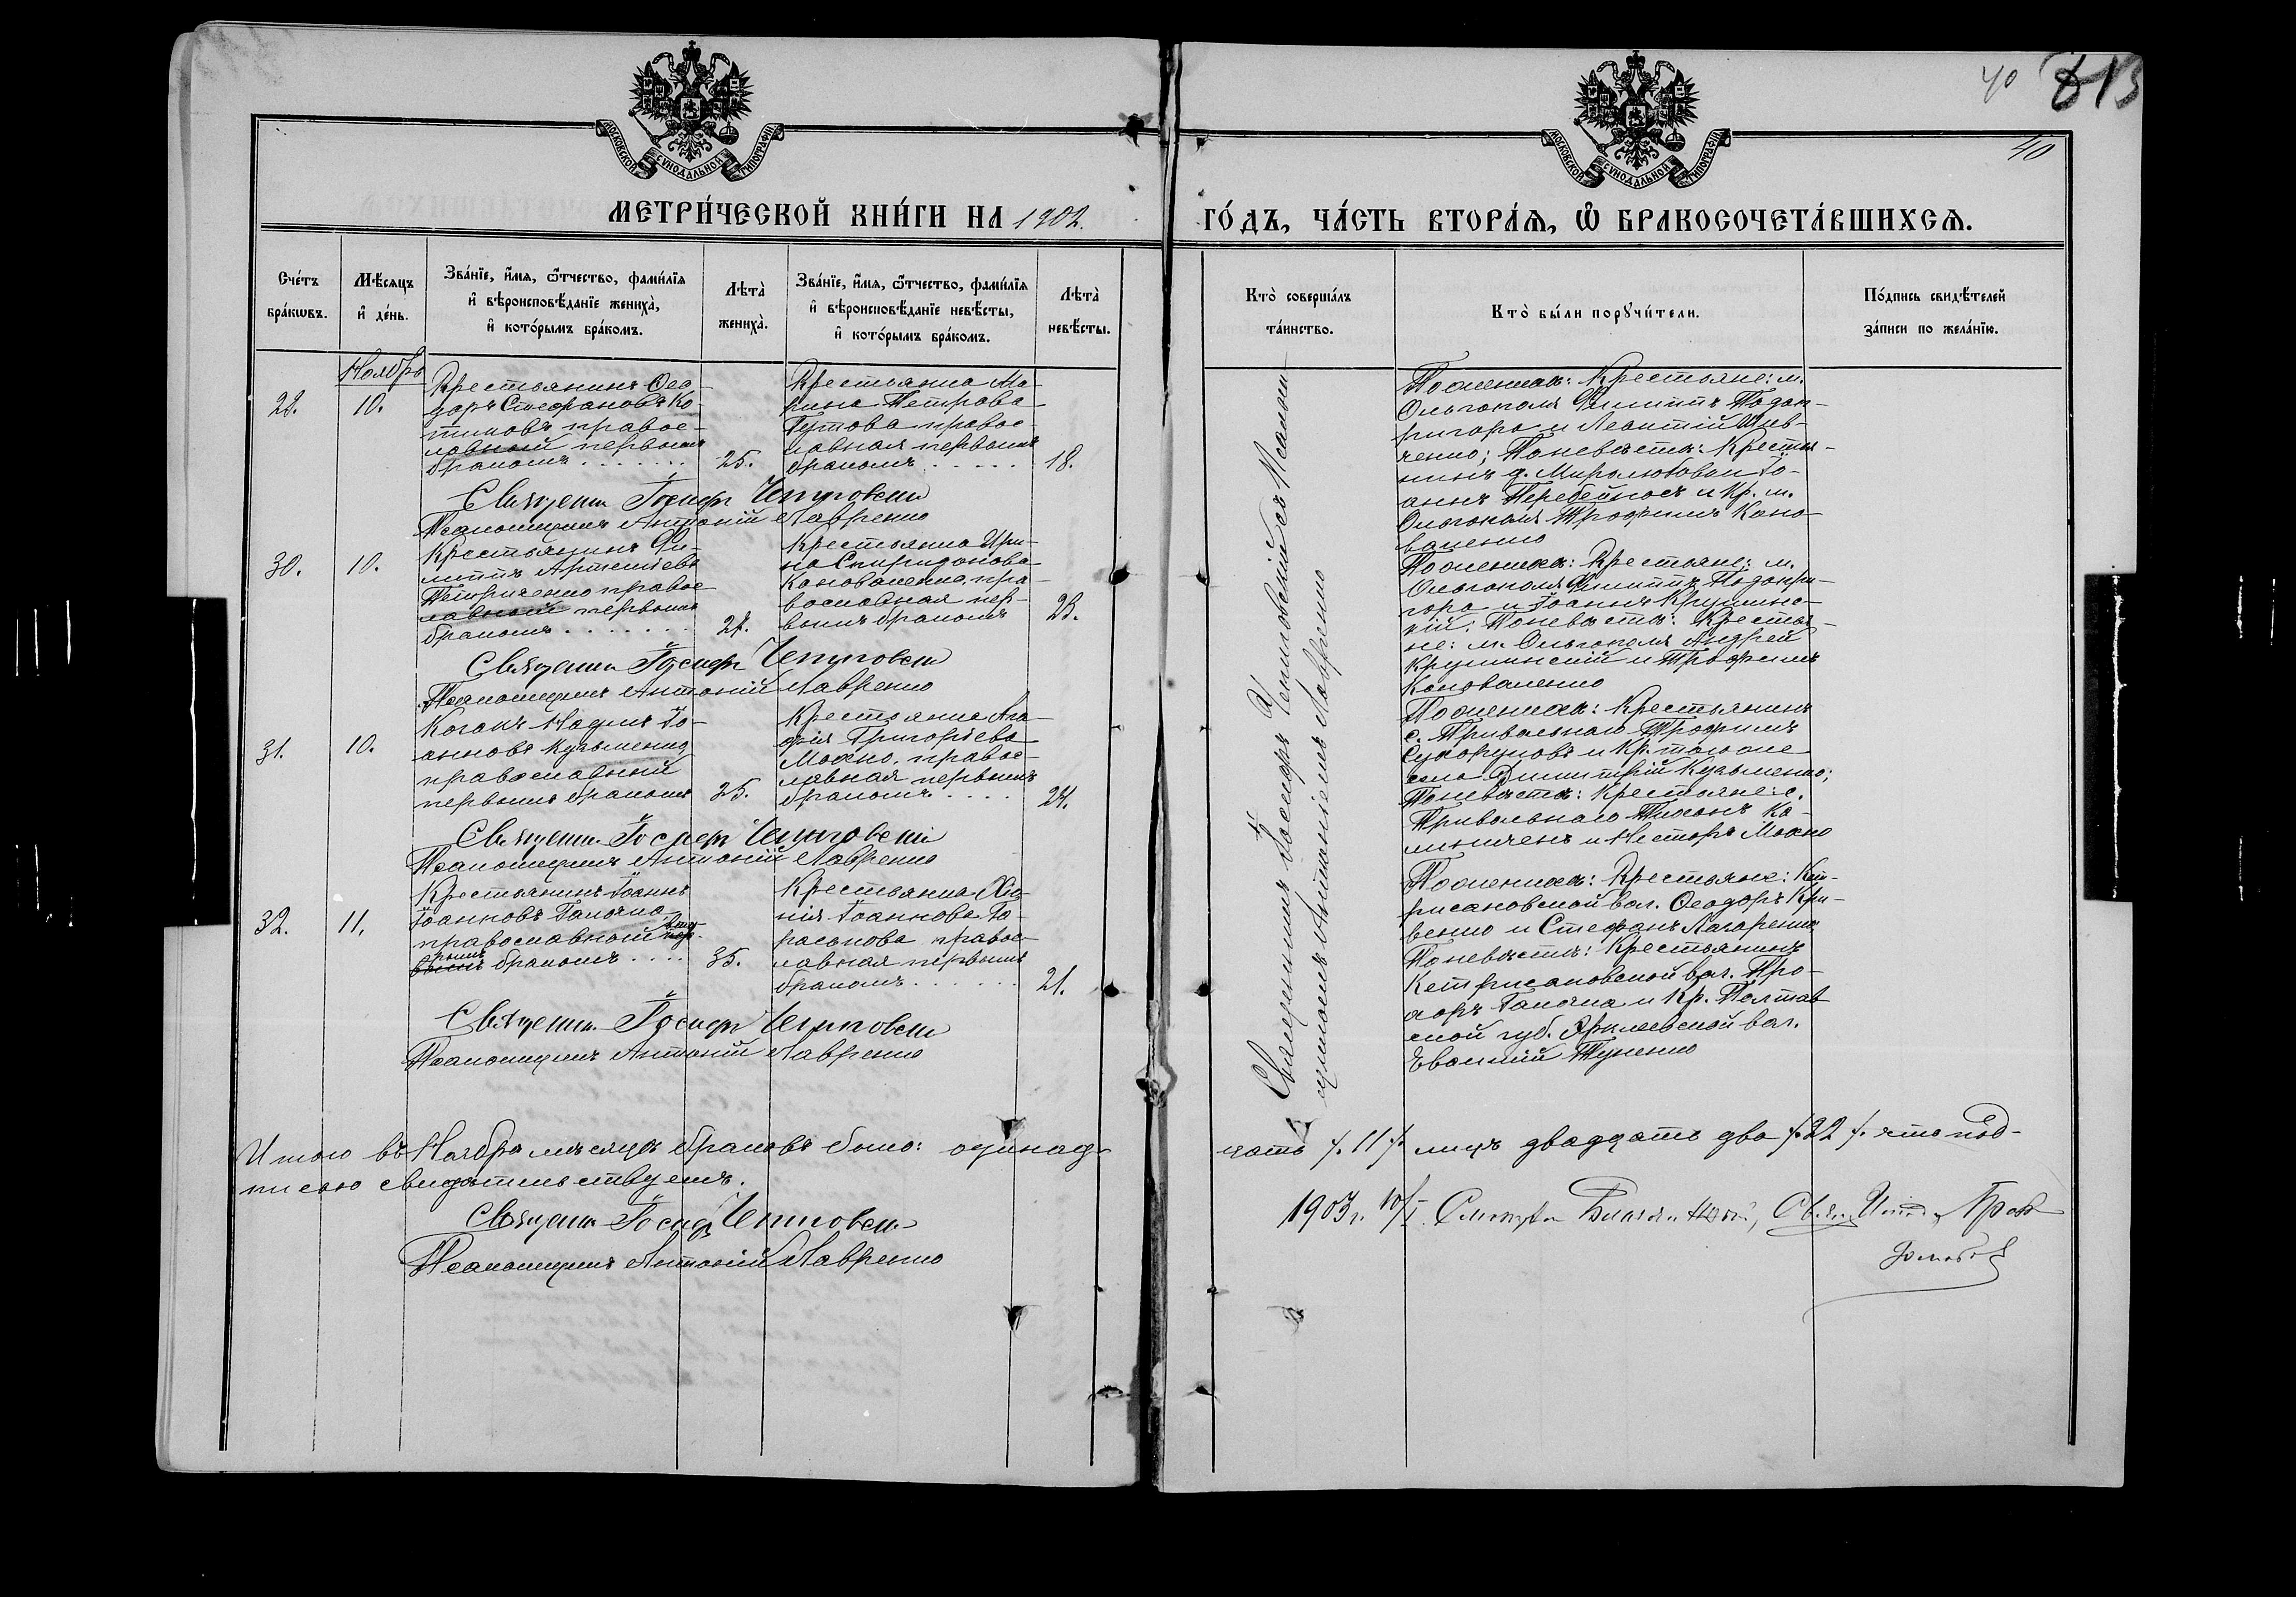 40
813
40
МОСКОВСКОЙ СУНОДАЛЬНОЙ ТИПОГРАФІИ
МОСКОВСКОЙ СУНОДАЛЬНОЙ ТИПОГРАФІИ
МЕТРИ́ЧЕСКОЙ КНИ́ГИ НА 1902.
ГО́ДЪ, ЧА́СТЬ ВТОРА́Ѧ, Ѽ БРАКОСОЧЕТА́ВШИХСѦ.
Сче́тъ бра́кѡвъ.
Мѣ́сяцъ и҆ де́нь.
Зва́нїе, и҆́мѧ, ѻ҆́тчество, фами́лїѧ
и҆ вѣроисповѣ́данїе жениха̀,
и҆ кото́рымъ бра́комъ.
Лѣта̀ жениха̀.
Зва́нїе, и҆́мѧ, ѻ҆́тчество, фами́лїѧ
и҆ вѣроисповѣ́данїе невѣ́сты,
и҆ кото́рымъ бра́комъ.
Лѣта̀ невѣ́сты.
Кто̀ соверша́лъ
та́инство.
Кто̀ бы́ли порꙋчи́тели.
По́дпись свидѣ́телей
за́писи по жела́нїю.
Ноябрь
28.
10.
Крестьянинъ Ѳео-
доръ Стефановъ Ко-
тиковъ правос-
лавный первымъ
бракомъ . . . . . . .
25.
Крестьянка Ма-
рина Петрова
Гутова правос-
лавная первымъ
бракомъ . . . . .
18.
По женихѣ: Крестьяне: м.
Ольгополя Филиппъ Подоп-
ригора и Леонтій Шев-
ченко; По невѣстѣ: Крестья-
нинъ д. Миролюбовки Іо-
аннъ Перебейносъ и Кр. м.
Ольгополя Трофимъ Коно-
валенко
Священн. Іосифъ Чепиговскій
Псаломщикъ Антоній Лавренко
30.
10.
Крестьянинъ Фи-
липпъ Артеміевъ
Петриченко правос-
лавный первымъ
бракомъ . . . . . . .
Крестьянка Ири-
на Спиридонова
Коноваленко, пра-
вославная пер-
вымъ бракомъ
23.
По женихѣ: Крестьяне: м.
Ольгополя Филиппъ Подопри-
гора и Іоаннъ Крушинс-
кій; По невѣстѣ: Крестья-
не: м. Ольгополя Андрей
Крушинскій и Трофимъ
Коноваленко
Священн. Іосифъ Чепиговскій
Псаломщикъ Антоній Лавренко
31.
10.
Іо-
анновъ Кузьменко
православный
первымъ бракомъ
25.
Крестьянка Ага-
фія Григоріева
Махно, правос-
лавная первымъ
бракомъ . . . .
24.
По женихѣ: Крестьянинъ
с. Привольнаго Трофимъ
Сухоруковъ и Кр. того же
села Димитрій Кузьменко;
По невѣстѣ: Крестьяне: с.
Привольнаго Тихонъ Ка-
и Несторъ Махно
Священн. Іосифъ Чепиговскій
Псаломщикъ Антоній Лавренко
32.
11.
Крестьянинъ Іоаннъ
Іоанновъ Гапочка
православный вто-
рымъ бракомъ . . . .
35.
Крестьянка
Іоаннова Га-
раськова правос-
лавная первымъ
бракомъ . . . . . .
21.
По женихѣ: Крестьяне: Кет-
рисановской вол. Ѳеодоръ Кри-
венко и Стефанъ Лагаренко
По невѣстѣ: Крестьянинъ
Кетрисановской вол. Про-
хоръ Гапочка и Кр. Полтав-
ской губ. вол.
Евфимій
Священн. Іосифъ Чепиговскій
Псаломщикъ Антоній Лавренко
Священникъ Іосифъ Чепиговскій съ Псалом-
щикомъ Антоніемъ Лавренко
Итого въ Ноябрѣ мѣсяцѣ браковъ было: одинад-
цать /. 11 /. лицъ двадцать два /. 22 /. что под-
писью свидѣтельствуемъ.
Священн. Іосифъ Чепиговскій
Псаломщикъ Антоній Лавренко
1903 г. 10/I.